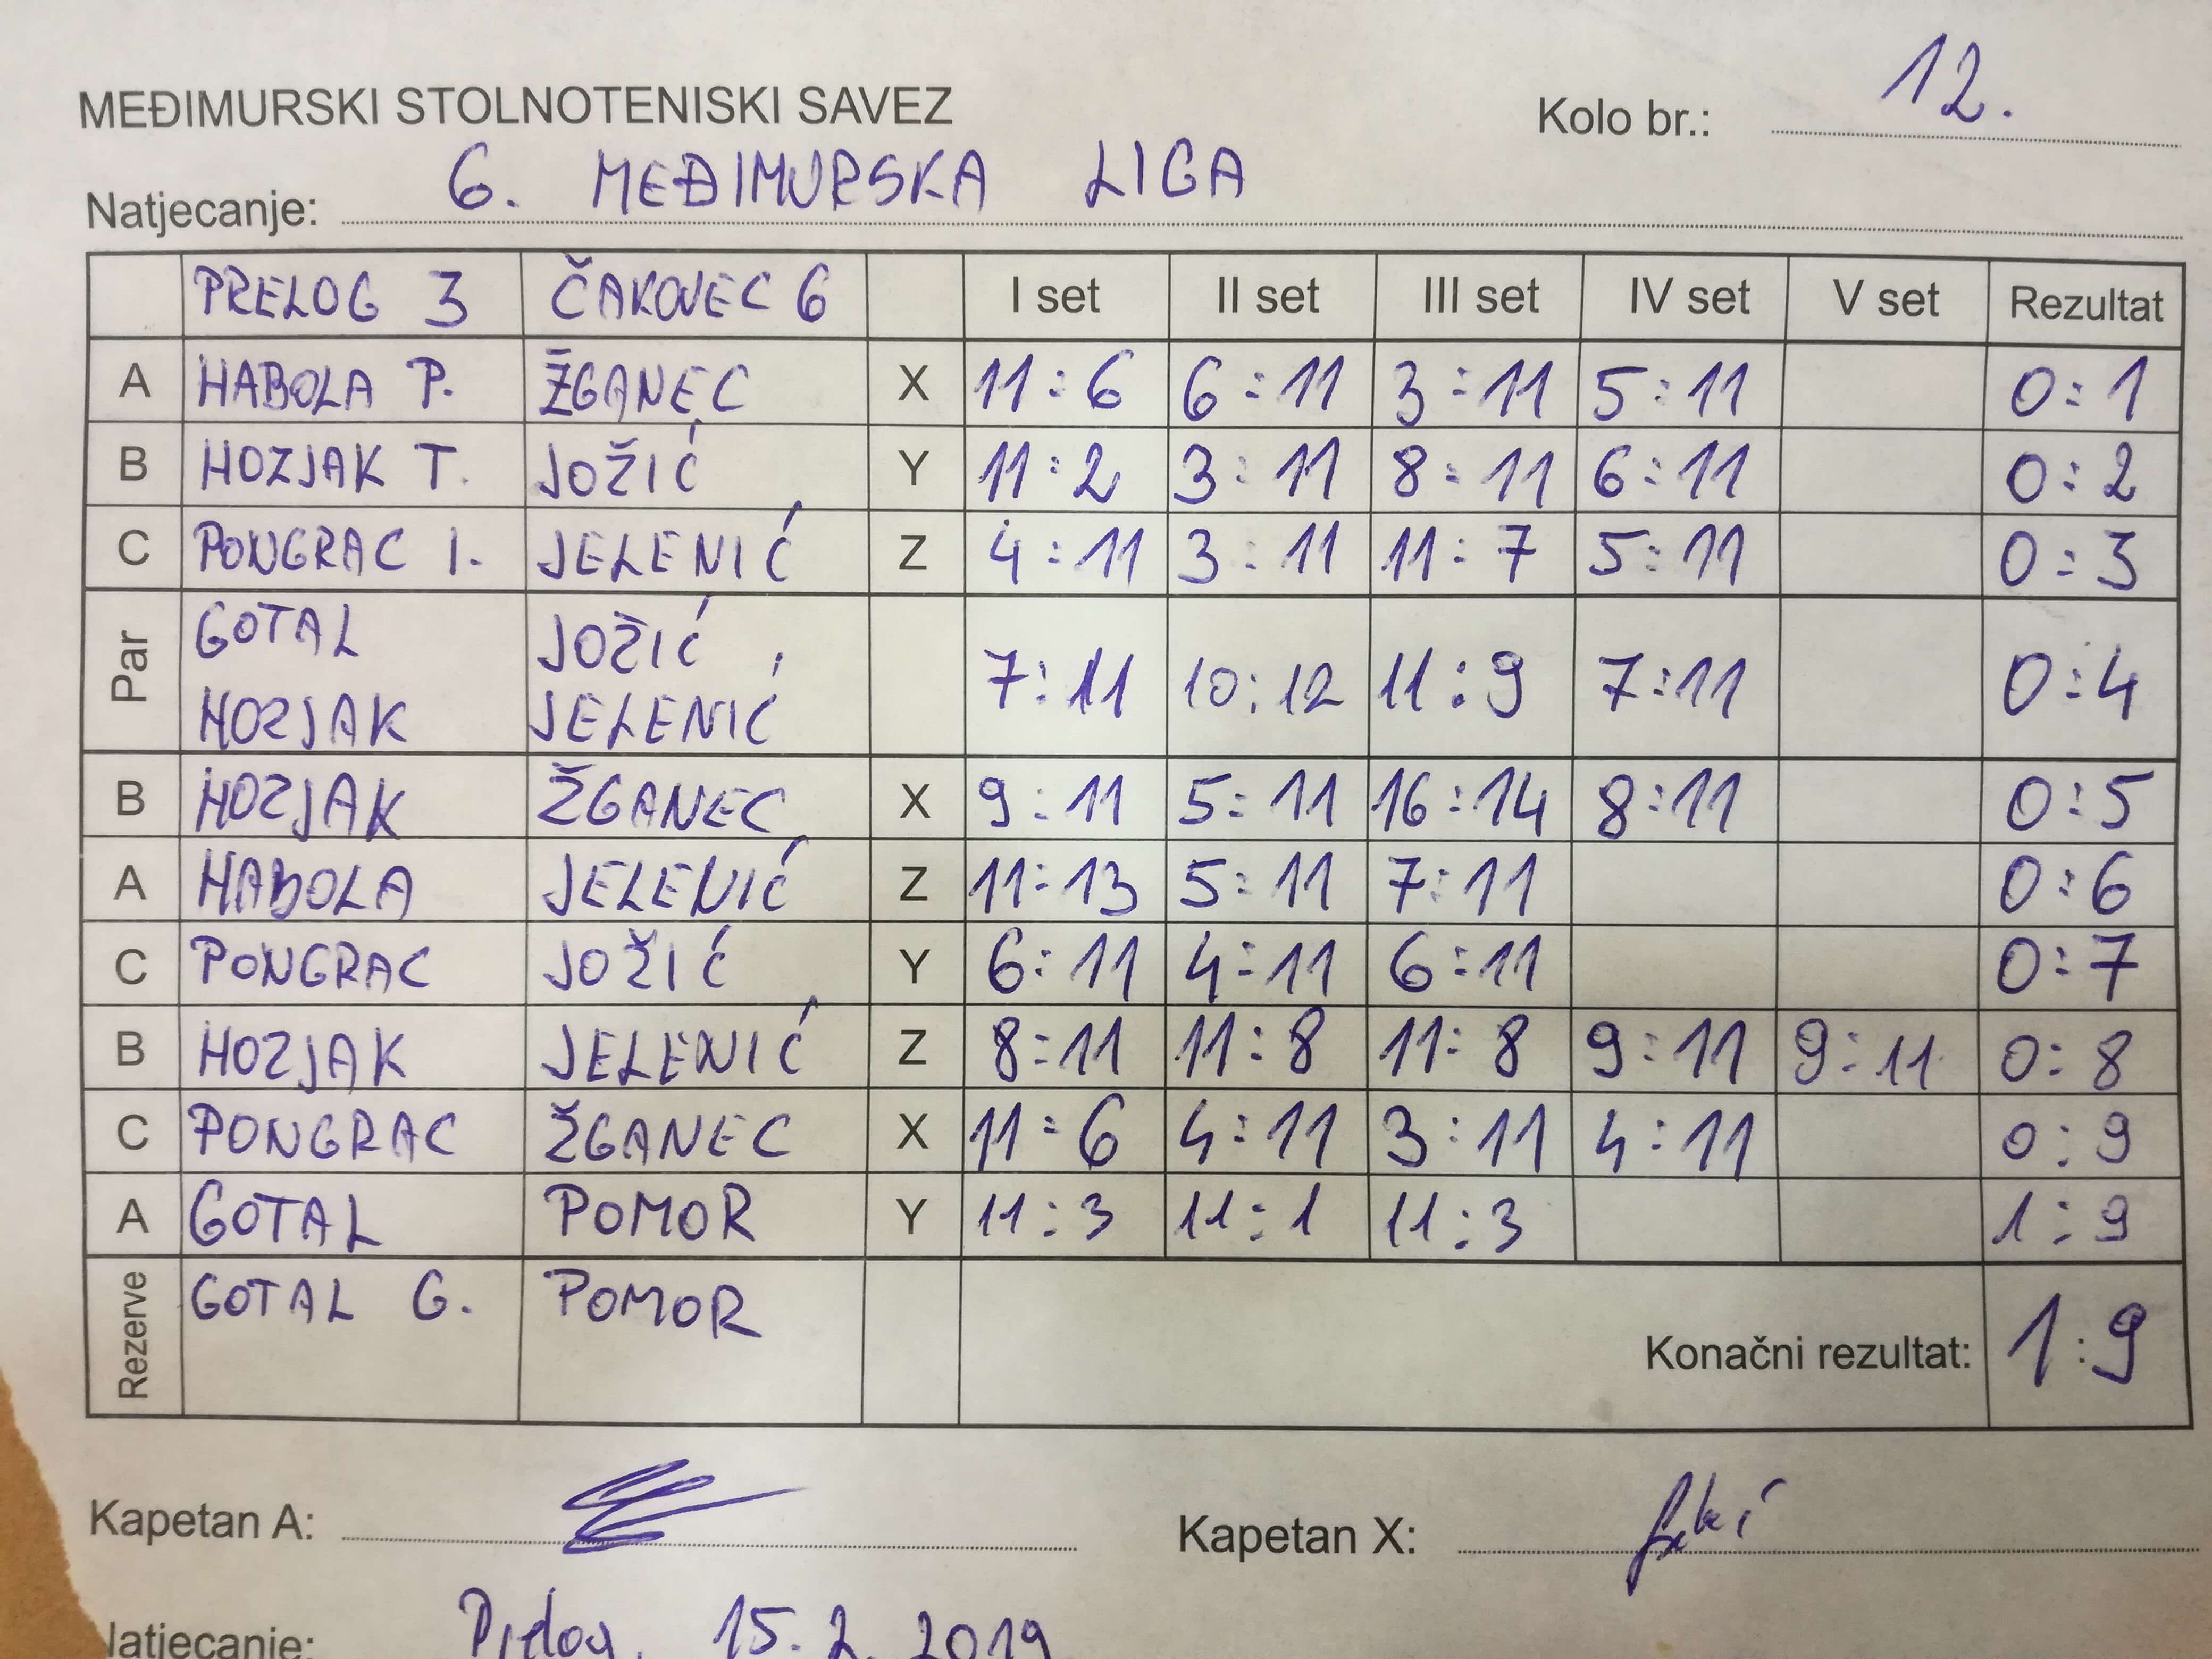 MEĐIMURSKI STOLNOTENISKI SAVEZ Kolo br.: 12.
Natjecanje: 6. MEĐIMURSKA LIGA
PRELOG 3 ČAKOVEC 6 I set II set III set IV set V set Rezultat
A HABOLA P. ŽGANEC X 11:6 6:11 3:11 5:11 0:1
B HOZJAK T. JOŽIĆ Y 11:2 3:11 8:11 6:11 0:2
C PONGRAC I. JELENIĆ Z 4:11 3:11 11:7 5:11 0:3
Par GOTAL JOŽIĆ 7:11 10:12 11:9 7:11 0:4
HOZJAK JELENIĆ
B HOZJAK ŽGANEC X 9:11 5:11 16:14 8:11 0:5
A HABOLA JELENIĆ Z 11:13 5:11 7:11 0:6
C PONGRAC JOŽIĆ Y 6:11 4:11 6:11 0:7
B HOZJAK JELENIĆ Z 8:11 11:8 11:8 9:11 9:11 0:8
C PONGRAC ŽGANEC X 11:6 4:11 3:11 4:11 0:9
A GOTAL POMOR Y 11:3 11:1 11:3 1:9
Rezerve GOTAL G. POMOR Konačni rezultat: 1:9
Kapetan A: Kapetan X:
Natjecanje: Prelog, 15.2.2019